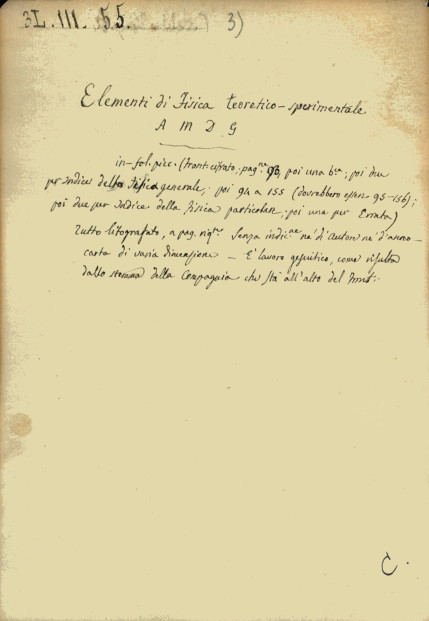 3L. III. 55. 3)
Elementi di Fisica teoretico-sperimentale
A M D G
in-fol. picc. (front. cifrato, pag.ne 93, poi una b.ca; poi due
per Indice della Fisica generale; poi 94 a 155 (dovrebbero essere 95-156);
poi due per Indice della Fisica particolare; poi una per Errata)
Tutto litografato, a pag. riq.te Senza indic.ne nè d'autore nè d'anno -
carta di varia dimensione - È lavoro gesuitico, come risulta
dallo stemma della Compagnia che sta all'alto del front.:
C.